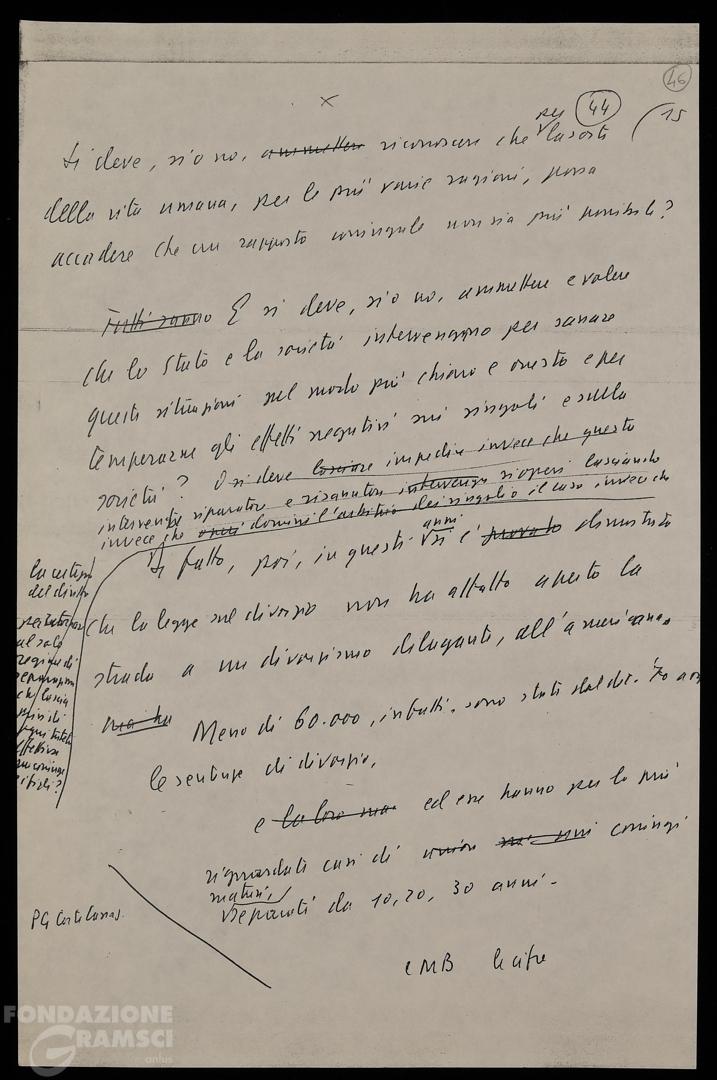 46
×
per 44 15
Si deve, sì o no, ammettere riconoscere che la sorte
della vita umana, per le più varie ragioni, possa
accadere che un rapporto coniugale non sia più possibile?
Tutti sanno E si deve, sì o no, ammettere e volere
che lo Stato e la società intervengano per sanare
queste situazioni nel modo più chiaro e onesto e per
temperarne gli effetti negativi sui singoli e sulla
società? O si deve lasciare impedire invece che questo
intervento riparatore e risanatore intervenga si operi lasciando
invece che domini l'arbitrio dei singoli o il caso invece che
la certezza
del diritto
al solo
regime di
separazione
che lascia
privi di
ogni tutela
effettiva
coniuge
e figli?
Di fatto, poi, in questi anni si è provato dimostrato
che la legge sul divorzio non ha affatto aperto la
strada a un divorzismo dilagante, all'americana.
ma ha Meno di 60.000, infatti, sono stati dal dic. 70 a oggi
le sentenze di divorzio,
e la loro ed esse hanno per lo più
riguardato casi di coniugi
maturi,
separati da 10, 20, 30 anni.
PG Corte Cass.
c MB le cifre
FONDAZIONE
GRAMSCI
onlus